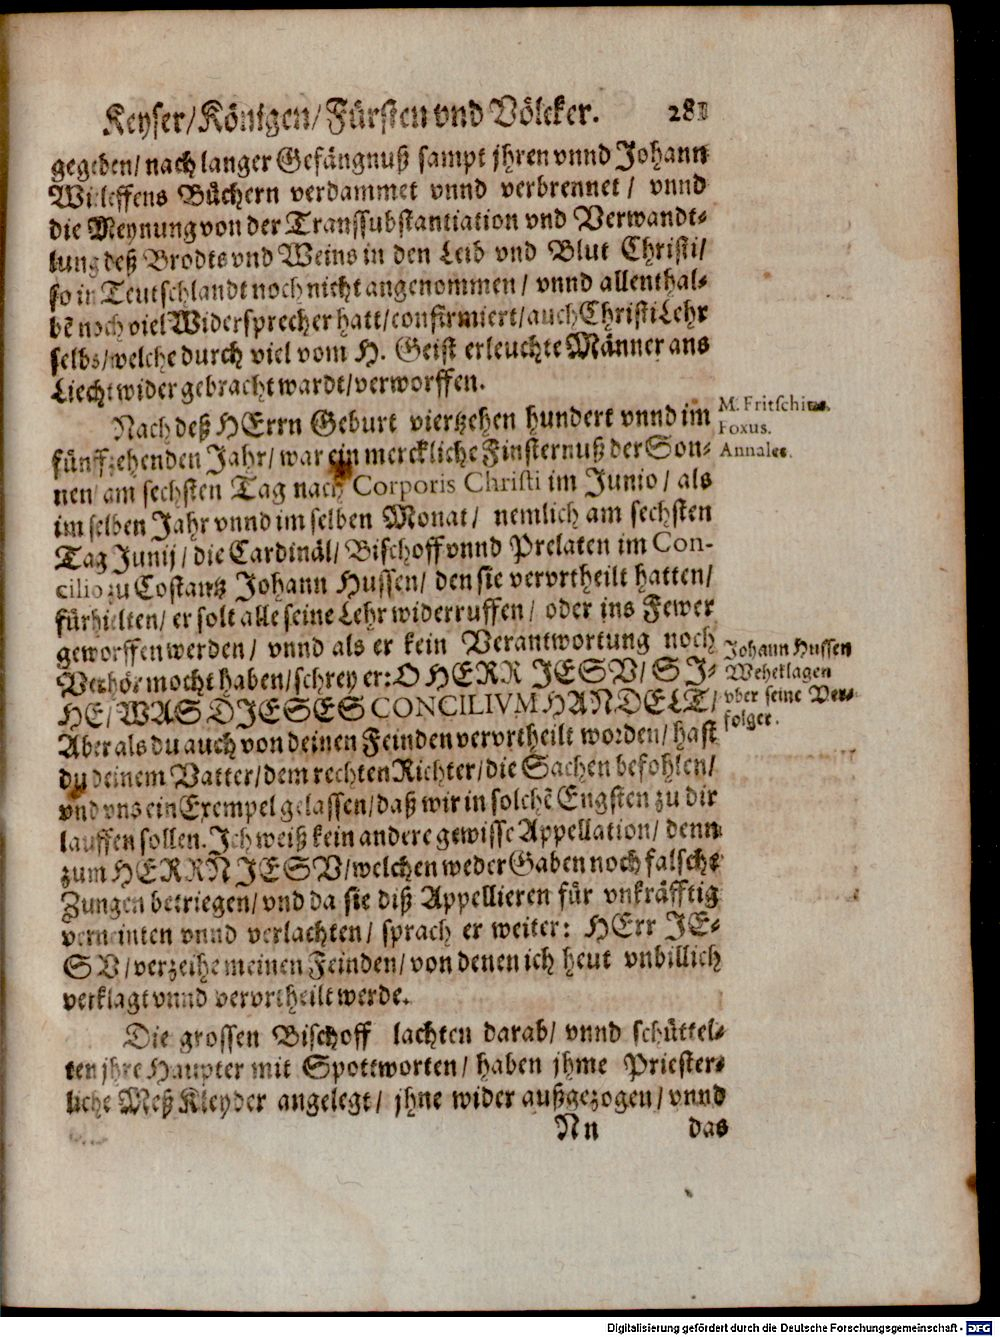 Keyser/Königen/Fürsten vnd Völcker. 281
gegeben/ nach langer Gefängnuß sampt jhren vnnd Johann
Wicleffens Büchern verdammet vnnd verbrennet / vnnd
die Meynung von der Transsubstantiation vnd Verwandt-
lung deß Brodts vnd Weins in den Leib vnd Blut Christi/
so in Teutschlandt noch nicht angenommen / vnnd allenthal-
bē noch viel Widersprecher hatt/confirmiert/auch Christi Lehr
selbs/welche durch viel vom H. Geist erleuchte Männer ans
Liecht wider gebracht wardt/verworffen.
Nach deß HErrn Geburt viertzehen hundert vnnd im
M. Fritschius.
Foxus.
Annales.
fünffzehenden Jahr/ war ein merckliche Finsternuß der Son-
nen am sechsten Tag nach Corporis Christi im Junio / als
im selben Jahr vnnd im selben Monat / nemlich am sechsten
Tag Junij / die Cardinäl/ Bischoff vnnd Prelaten im Con-
cilio zu Costantz Johann Hussen/ den sie verurtheilt hatten/
fürhielten/ er solt alle seine Lehr widerruffen / oder ins Fewer
geworffen werden / vnnd als er kein Verantwortung noch
Verhör mocht haben/schrey er: O HERR JESV/ SJ-
Johann Hussen
Wehetlagen
vber seine Ver-
folger.
HE/ WAS DJESES CONCILIVM HANDELT/
Aber als du auch von deinen Feinden verurtheilt worden/ hast
du deinem Vatter/dem rechten Richter/die Sachen befohlen/
vnd vns ein Exempel gelassen/daß wir in solchē Engsten zu dir
lauffen sollen. Ich weiß kein andere gewisse Appellation/ denn
zum HERRN JESV/welchen weder Gaben noch falsche
Zungen betriegen/ vnd da sie diß Appellieren für vnkräfftig
verneinten vnnd verlachten/ sprach er weiter: HErr JE-
SV/verzeihe meinen Feinden/ von denen ich heut vnbillich
verklagt vnnd verurtheilt werde.
Die grossen Bischoff lachten darab/ vnnd schüttel-
ten jhre Haupter mit Spottworten/ haben jhme Priester-
liche Meß Kleyder angelegt/ jhne wider außgezogen/ vnnd
Nn das
Digitalisierung gefördert durch die Deutsche Forschungsgemeinschaft - DFG